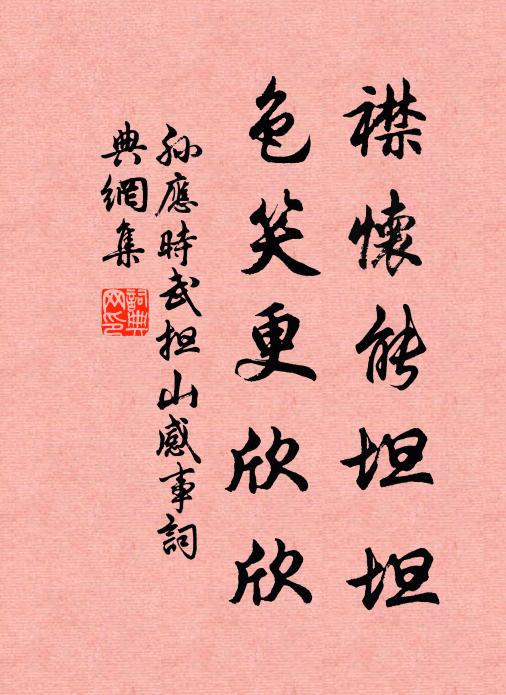 襟懷能坦坦
色笑更欣欣
孫應時武担山感事詞
典網集
詞典网印